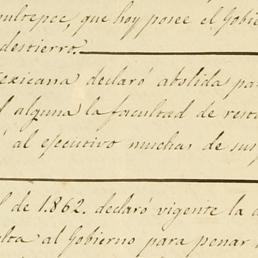 ultepec, que hoy posee el Gobie
destierro.
exicana declaró abolida pa
d alguna la facultad de rest
á al ejecutivo muchas de sus
l de 1862. declaró vigente la
ulta al Gobierno para penar